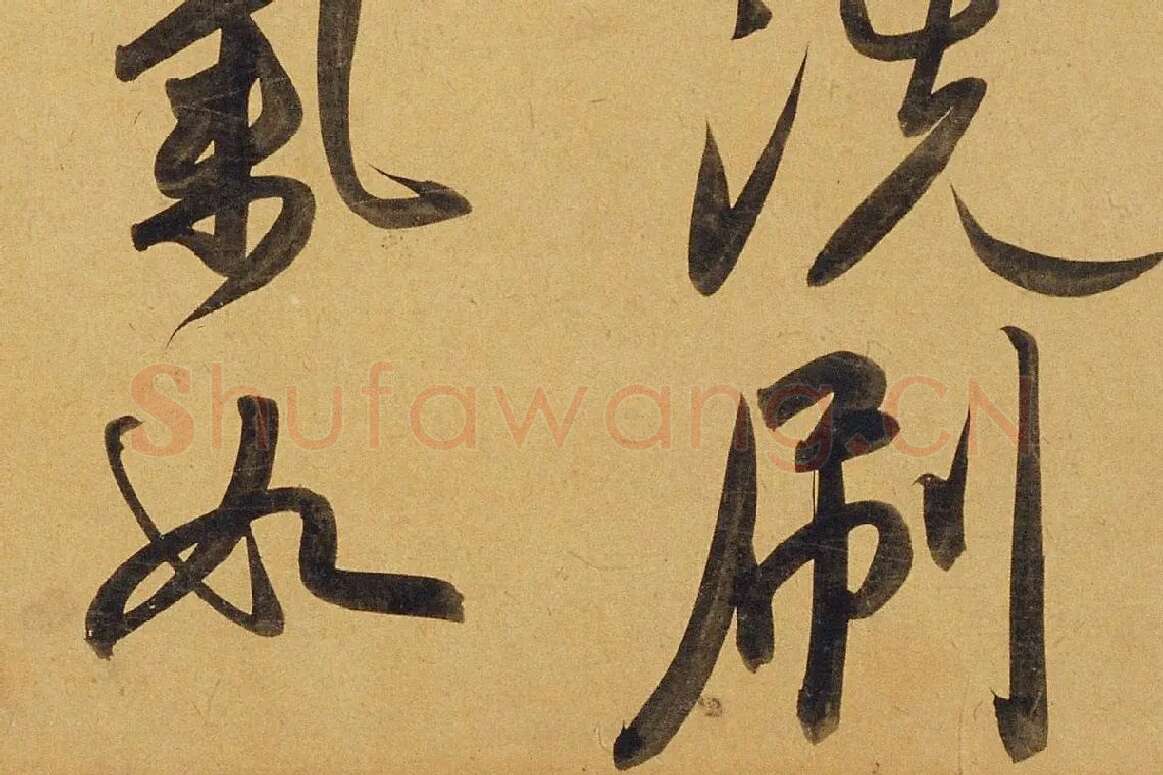 洗刷
如
Shufawang.CN